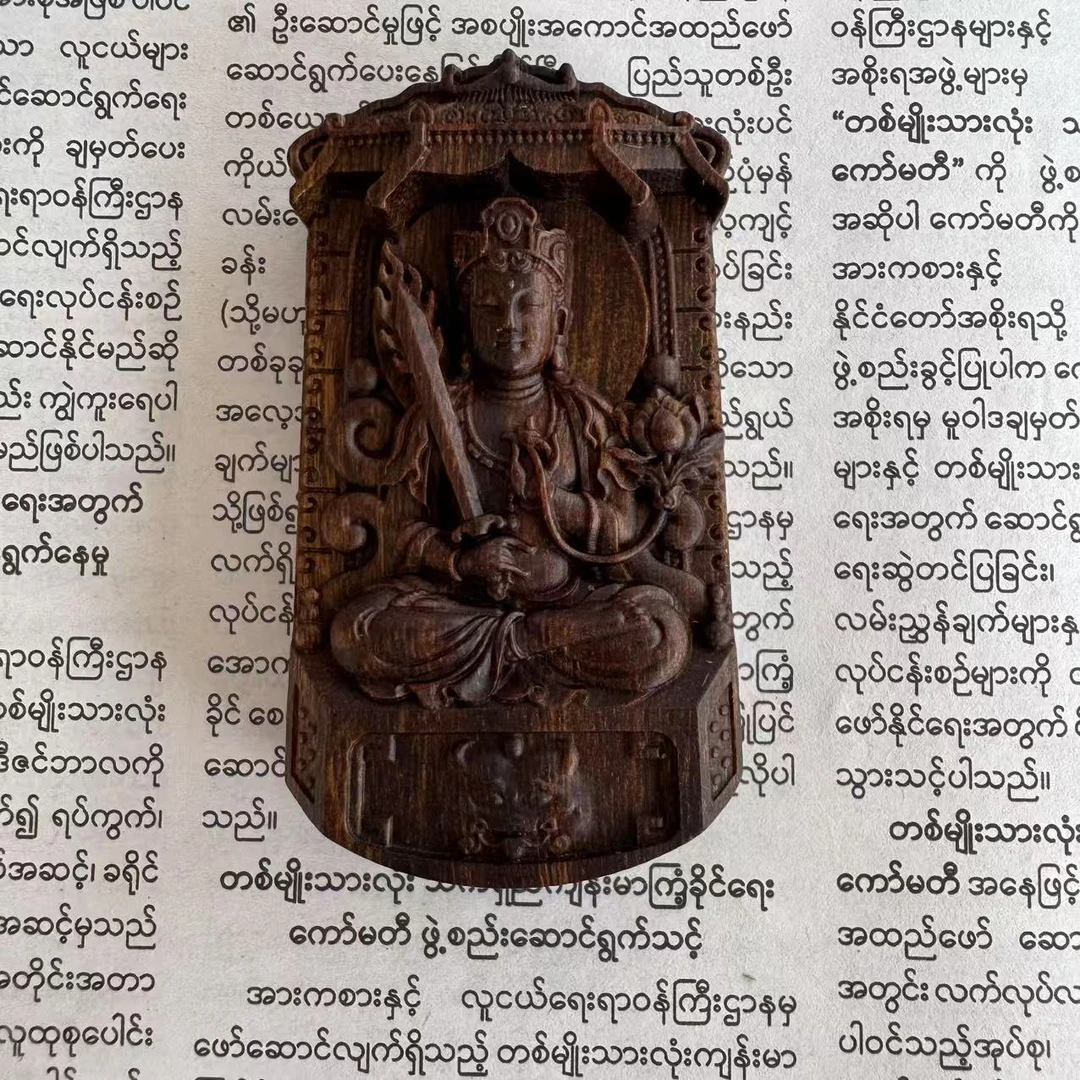 လူငယ်များ
င်ဆောင်ရွက်ရေး
းကို ချမှတ်ပေး
ရေးရာဝန်ကြီးဌာန
ာင်လျက်ရှိသည့်
ရေးလုပ်ငန်းစဉ်
ဆောင်နိုင်မည်ဆို
ည်း ကျွဲကူးရေပါ
မည်ဖြစ်ပါသည်။
ရေးအတွက်
ရွက်နေမှု
ရာဝန်ကြီးဌာန
စ်မျိုးသားလုံး
ဇင်ဘာလကို
၍ ရပ်ကွက်၊
အဆင့်၊ ခရိုင်
အဆင့်မှသည်
အတိုင်းအတာ
လူထုစုပေါင်း
၏ ဦးဆောင်မှုဖြင့် အစပျိုးအကောင်အထည်ဖော်
ဆောင်ရွက်ပေးနေ ပြည်သူတစ်ဦး
တစ်ယော လုံးပင်
ကိုယ် ပုံမှန်
လမ်း ကျင့်
ခန်း ပ်ခြင်း
(သို့မဟု နည်း
တစ်ခုခု သော
အလေ့အ ည်ရွယ်
ချက်မျာ သည်။
သို့ဖြစ်၍ ဌာနမှ
လက်ရှိ သည့်
လုပ်ငန်း တွက်
အောက
ခိုင် စေ ပြင်
ဆောင် လိုပါ
သည်။
တစ်မျိုးသားလုံး ကျန်းမာကြံ့ခိုင်ရေး
ကော်မတီ ဖွဲ့စည်းဆောင်ရွက်သင့်
အားကစားနှင့် လူငယ်ရေးရာဝန်ကြီးဌာနမှ
ဖော်ဆောင်လျက်ရှိသည့် တစ်မျိုးသားလုံးကျန်းမာ
ဝန်ကြီးဌာနများနှင့်
အစိုးရအဖွဲ့များမှ
“တစ်မျိုးသားလုံး
ကော်မတီ” ကို ဖွဲ့စ
အဆိုပါ ကော်မတီကို
အားကစားနှင့်
နိုင်ငံတော်အစိုးရသို့
ဖွဲ့စည်းခွင့်ပြုပါက
အစိုးရမှ မူဝါဒချမှတ်
များနှင့် တစ်မျိုးသား
ရေးအတွက် ဆောင်ရွ
ရေးဆွဲတင်ပြခြင်း၊
လမ်းညွှန်ချက်များန
လုပ်ငန်းစဉ်များကို
ဖော်နိုင်ရေးအတွက်
သွားသင့်ပါသည်။
တစ်မျိုးသားလုံး
ကော်မတီ အနေဖြင့်
အထည်ဖော် ဆော
အတွင်း လက်လုပ်လ
ပါဝင်သည့်အုပ်စု၊